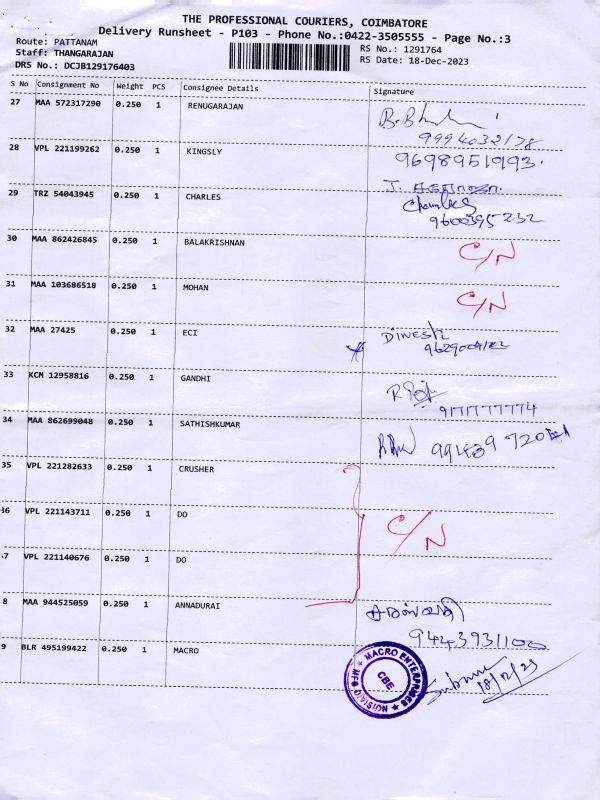 THE PROFESSIONAL COURIERS, COIMBATORE
Delivery Runsheet - P103 - Phone No.:0422-3505555 - Page No.:3
Route: PATTANAM
Staff: THANGARAJAN
DRS No.: DCJB129176403
RS No.: 1291764
RS Date: 18-Dec-2023
S No Consignment No Weight PCS Consignee Details Signature
27 MAA 572317290 0.250 1 RENUGARAJAN
9994032178
28 VPL 221199262 0.250 1 KINGSLY 9698951993.
29 TRZ 54043945 0.250 1 CHARLES
Charles
9600395232
30 MAA 862426845 0.250 1 BALAKRISHNAN C/N
31 MAA 103686518 0.250 1 MOHAN C/N
32 MAA 27425 0.250 1 ECI DINESH
33 KCM 12958816 0.250 1 GANDHI
34 MAA 862699048 0.250 1 SATHISHKUMAR
35 VPL 221282633 0.250 1 CRUSHER
36 VPL 221143711 0.250 1 DO C/N
7 VPL 221140676 0.250 1 DO
8 MAA 944525059 0.250 1 ANNADURAI சரஸ்வதி
9443931100
9 BLR 495199422 0.250 1 MACRO
MACRO ENTERPRISES
CBE
18/12/23